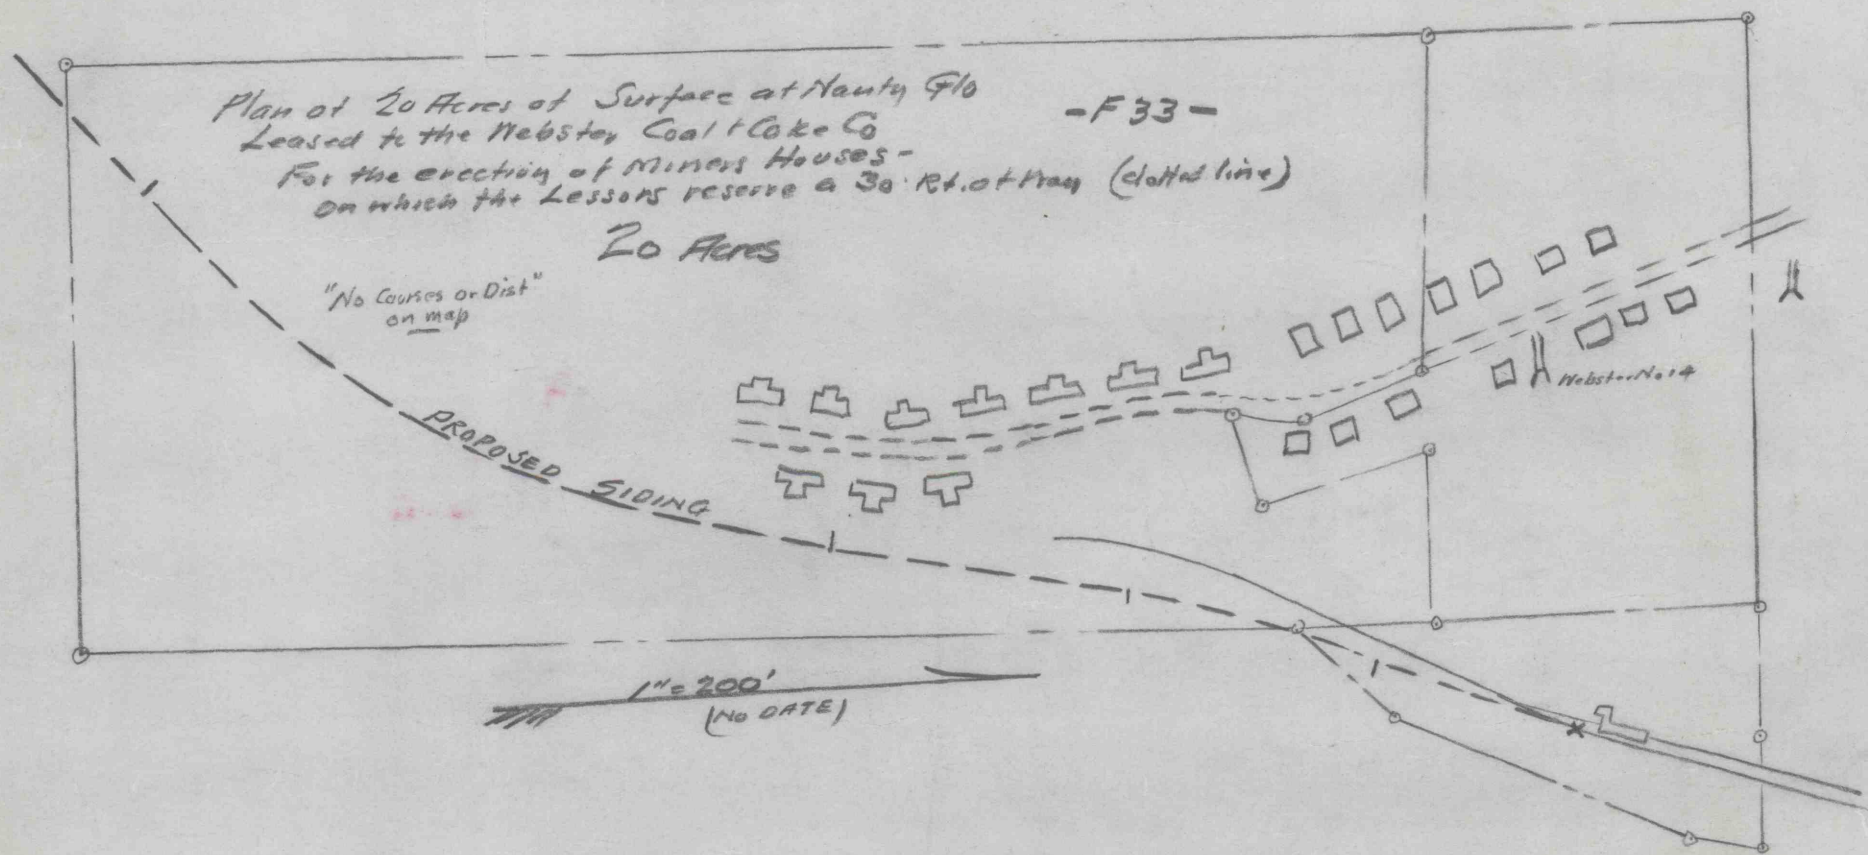 Plan of 20 Acres of Surface at Nanty Glo
Leased to the Webster Coal & Coke Co
For the erection of Miners Houses -
on which the Lessors reserve a 30' Rt. of Way (dotted line)
- F 33 -
20 Acres
"No Courses or Dist"
on map
PROPOSED SIDING
Webster No. 4
1" = 200'
(NO DATE)